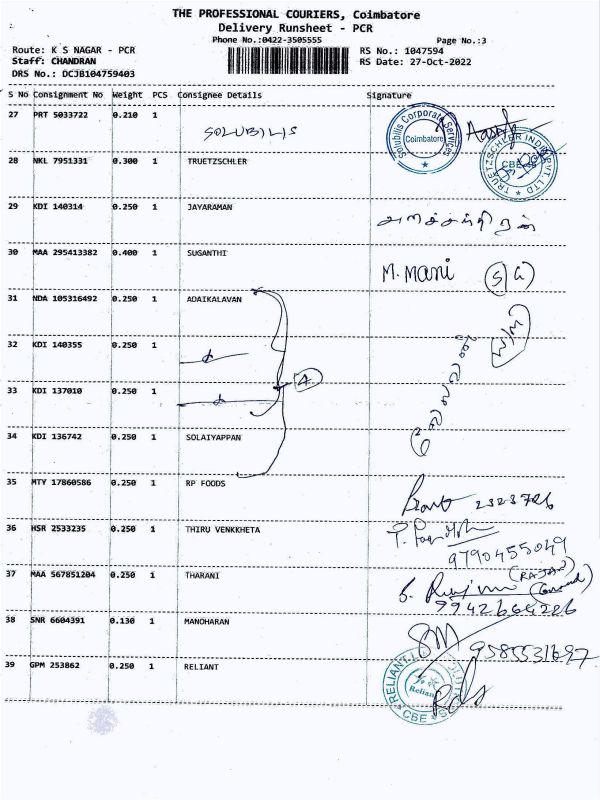 THE PROFESSIONAL COURIERS, Coimbatore
Delivery Runsheet - PCR
Phone No.:0422-3505555 Page No.:3
Route: K S NAGAR - PCR RS No.: 1047594
Staff: CHANDRAN RS Date: 27-Oct-2022
DRS No.: DCJB104759403
S No Consignment No Weight PCS Consignee Details Signature
27 PRT 5033722 0.210 1 SOLUBILIS
Solubilis Corporate Services Coimbatore
28 NKL 7951331 0.300 1 TRUETZSCHLER
TRUETZSCHLER INDIA PVT. LTD CBE
29 KDI 140314 0.250 1 JAYARAMAN
30 MAA 295413382 0.400 1 SUGANTHI M. Mani
31 NDA 105316492 0.250 1 ADAIKALAVAN
32 KDI 140355 0.250 1
33 KDI 137010 0.250 1 4
34 KDI 136742 0.250 1 SOLAIYAPPAN
35 MTY 17860586 0.250 1 RP FOODS 2323726
36 HSR 2533235 0.250 1 THIRU VENKKHETA
9790455049
37 MAA 567851204 0.250 1 THARANI (RAJAN)
9942664226
38 SNR 6604391 0.130 1 MANOHARAN SM 9585531697
39 GPM 253862 0.250 1 RELIANT
Reliant
CBE